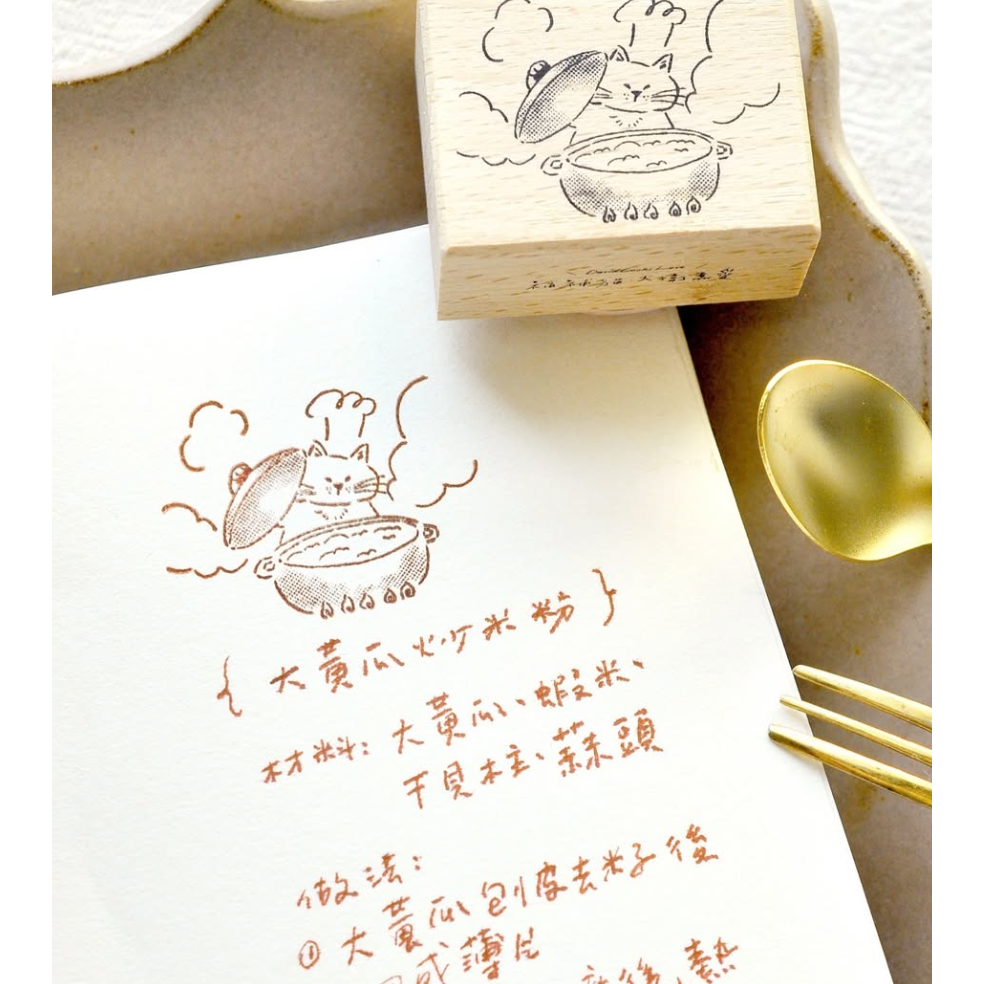 {大黃瓜炒米粉}
材料：大黃瓜、蝦米、
干貝柱、蒜頭
做法：
① 大黃瓜刨皮去籽後
成薄片
後，熱